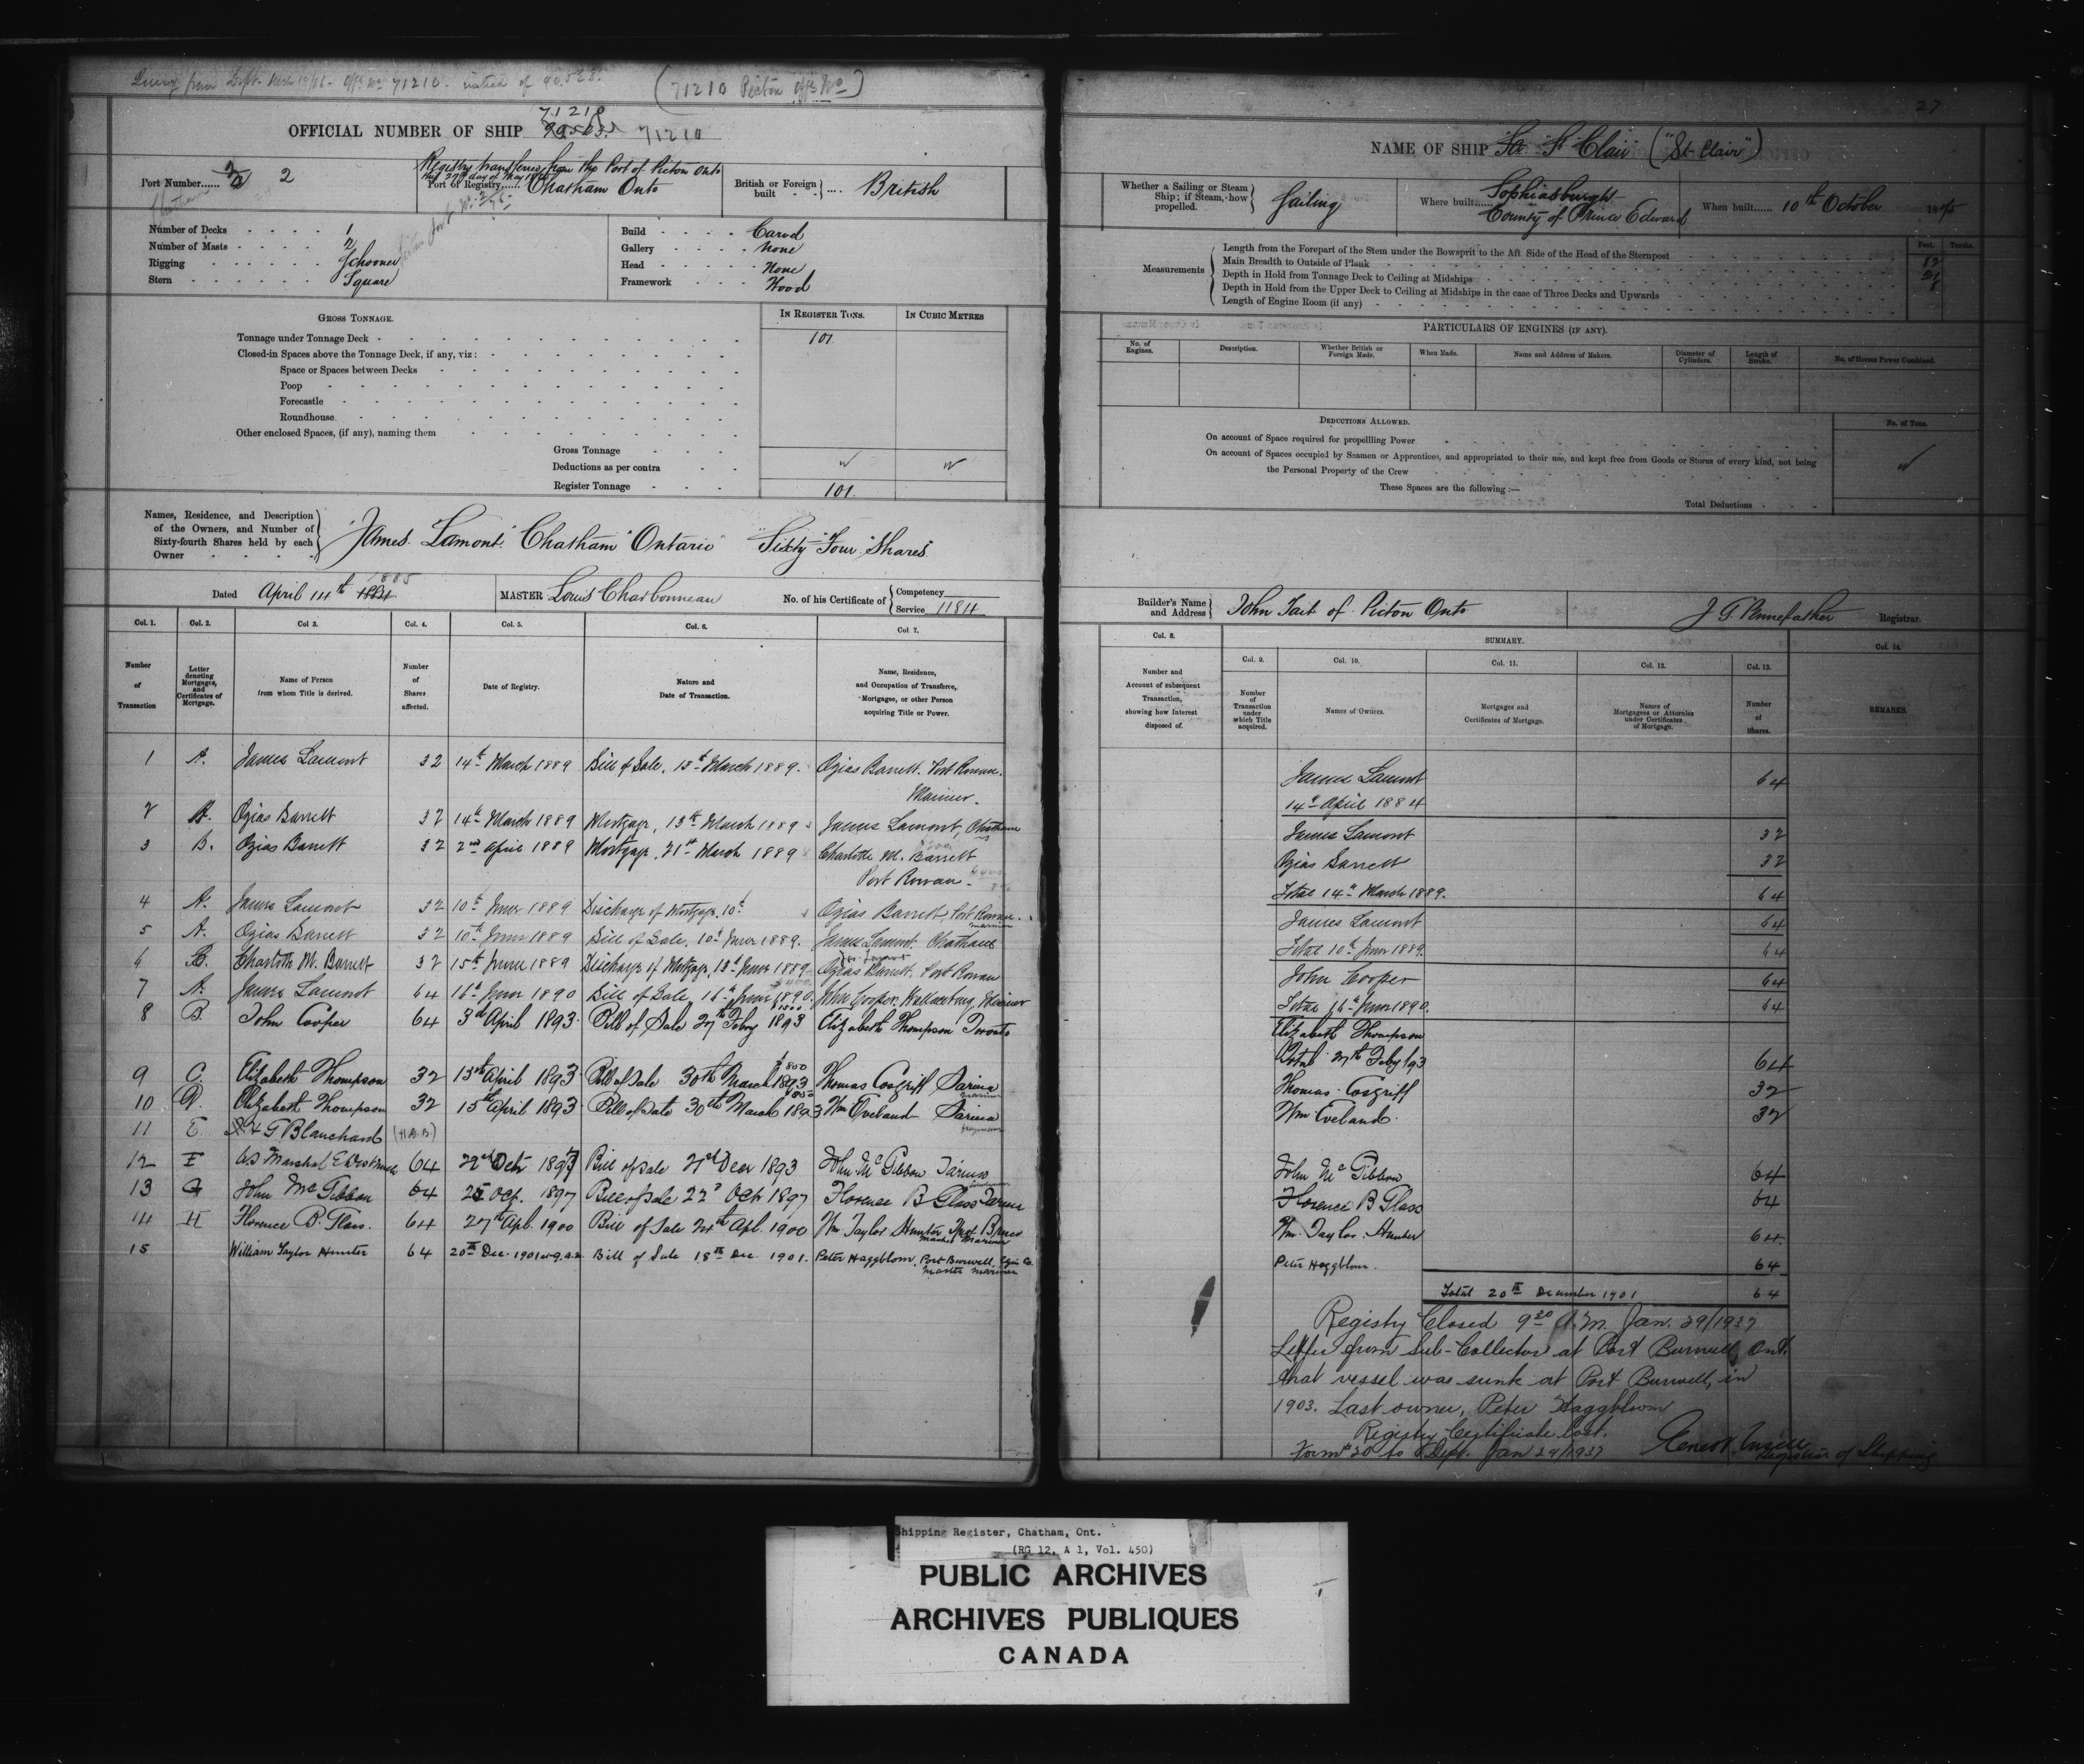 Query from Dept. Mch - Offl No 71210. instead of 90
(71210 Picton offl No)
71210
OFFICIAL NUMBER OF SHIP 71210
Registry transferred from the Port of Picton Onto
Port Number...... 2
Port of Registry...... Chatham Onto
British or Foreign built } .... British
Number of Decks 1
Number of Masts 2
Rigging Schooner
Stern Square
Build Carvel
Gallery None
Head None
Framework Wood
GROSS TONNAGE.
IN REGISTER TONS.
IN CUBIC METRES
Tonnage under Tonnage Deck 101
Closed-in Spaces above the Tonnage Deck, if any, viz:
Space or Spaces between Decks
Poop
Forecastle
Roundhouse
Other enclosed Spaces, (if any), naming them
Gross Tonnage
Deductions as per contra
Register Tonnage 101.
Names, Residence, and Description
of the Owners, and Number of
Sixty-fourth Shares held by each
Owner
"James Lamont" Chatham "Ontario" "Sixty "Four" Shares"
Dated April 14th 1884 1885
MASTER Louis Charbonneau
No. of his Certificate of { Competency
Service 11814
Col. 1. Col. 2. Col 3. Col. 4. Col. 5. Col. 6. Col 7.
Number of Transaction
Letter denoting Mortgages, and Certificates of Mortgage.
Name of Person from whom Title is derived.
Number of Shares affected.
Date of Registry.
Nature and Date of Transaction.
Name, Residence, and Occupation of Transferee, Mortgagee, or other Person acquiring Title or Power.
1 A. James Lamont 32 14th March 1889 Bill of Sale, 13th March 1889. Ozias Barrett. Port Rowan.
Mariner.
2 A. Ozias Barrett 32 14th March 1889 Mortgage, 13th March 1889 James Lamont, Chatham
3 B. Ozias Barrett 32 2nd April 1889 Mortgage, 21st March 1889 Charlotte M. Barrett
Port Rowan
4 A. James Lamont 32 10th June 1889 Discharge of Mortgage, 10th Ozias Barrett, Port Rowan.
mariner
5 A. Ozias Barrett 32 10th June 1889 Bill of Sale, 10th June 1889. James Lamont. Chatham
6 B. Charlotte M. Barrett 32 15th June 1889 Discharge of Mortgage, 13th June 1889 Ozias Barrett. Port Rowan
7 A. James Lamont 64 16th June 1890 Bill of Sale, 16th June 1890. John Cooper. Wallaceburg, Mariner
8 B. John Cooper 64 3rd April 1893 Bill of Sale 27th Feby 1893 Elizabeth Thompson Toronto
$800
9 C. Elizabeth Thompson 32 13th April 1893 Bill of Sale 30th March 1893 Thomas Cosgriff Sarnia
mariner
10 D. Elizabeth Thompson 32 15th April 1893 Bill of Sale 30th March 1893 Wm Eveland Sarnia
11 E G Blanchard (H.B.B)
12 F US Marshal 64 22nd 1893 Bill of Sale 21st Decr 1893 John McGibbon Sarnia
13 G John McGibbon 64 25 Oct. 1897 Bill of Sale 22d Oct 1897 Florence B Glass Sarnia
14 H Florence B. Glass. 64 27th Apl. 1900 Bill of Sale 24th Apl. 1900 Wm Taylor Hunter
Master Mariner
15 William Taylor Hunter 64 20th Dec. 1901 at 9 a.m. Bill of Sale 18th Dec. 1901. Peter Haggblom, Port Burwell, Elgin Co.
Master Mariner
27
NAME OF SHIP St Clair ("St Clair")
Whether a Sailing or Steam
Ship; if Steam, how
propelled.
Sailing
Where built...... Sophiasburgh
County of Prince Edward
When built...... 10th October 1875
Measurements
Feet. Tenths.
Length from the Forepart of the Stem under the Bowsprit to the Aft Side of the Head of the Sternpost
Main Breadth to Outside of Plank
Depth in Hold from Tonnage Deck to Ceiling at Midships
Depth in Hold from the Upper Deck to Ceiling at Midships in the case of Three Decks and Upwards
Length of Engine Room (if any)
PARTICULARS OF ENGINES (IF ANY).
No. of Engines.
Description.
Whether British or Foreign Made.
When Made.
Name and Address of Makers.
Diameter of Cylinders.
Length of Stroke.
No. of Horses Power Combined.
DEDUCTIONS ALLOWED.
No. of Tons.
On account of Space required for propellling Power
On account of Spaces occupied by Seamen or Apprentices, and appropriated to their use, and kept free from Goods or Stores of every kind, not being
the Personal Property of the Crew
These Spaces are the following:—
Total Deductions
Builder's Name
and Address }
John Tait of Picton Onto
J G. Pennefather Registrar.
SUMMARY.
Col. 8. Col. 9. Col. 10. Col. 11. Col. 12. Col. 13. Col. 14.
Number and Account of subsequent Transaction, showing how Interest disposed of.
Number of Transaction under which Title acquired.
Names of Owners.
Mortgages and Certificates of Mortgage.
Names of Mortgagees or Attornies under Certificates of Mortgage.
Number of Shares.
REMARKS.
James Lamont 64
14th April 1884
James Lamont 32
Ozias Barrett 32
Total 14th March 1889. 64
James Lamont 64
Total 10th June 1889 64
John Cooper 64
Total 16th June 1890. 64
Elizabeth Thompson
Total 27th Feby 93 64
Thomas Cosgriff 32
Wm Eveland 32
John McGibbon 64
Florence B Glass 64
Wm. Taylor Hunter 64
Peter Haggblom. 64
Total 20th December 1901 64
Registry Closed 9.30 A.M. Jan. 29/1937
Letter from Sub-Collector at Port Burwell, Ont.
that vessel was sunk at Port Burwell, in
1903. Last owner, Peter Haggblom
Registry Certificate lost.
Form 20 to Dept. Jan 29/1937
Registrar of Shipping
Shipping Register, Chatham, Ont.
(RG 12, A 1, Vol. 450)
PUBLIC ARCHIVES
ARCHIVES PUBLIQUES
CANADA